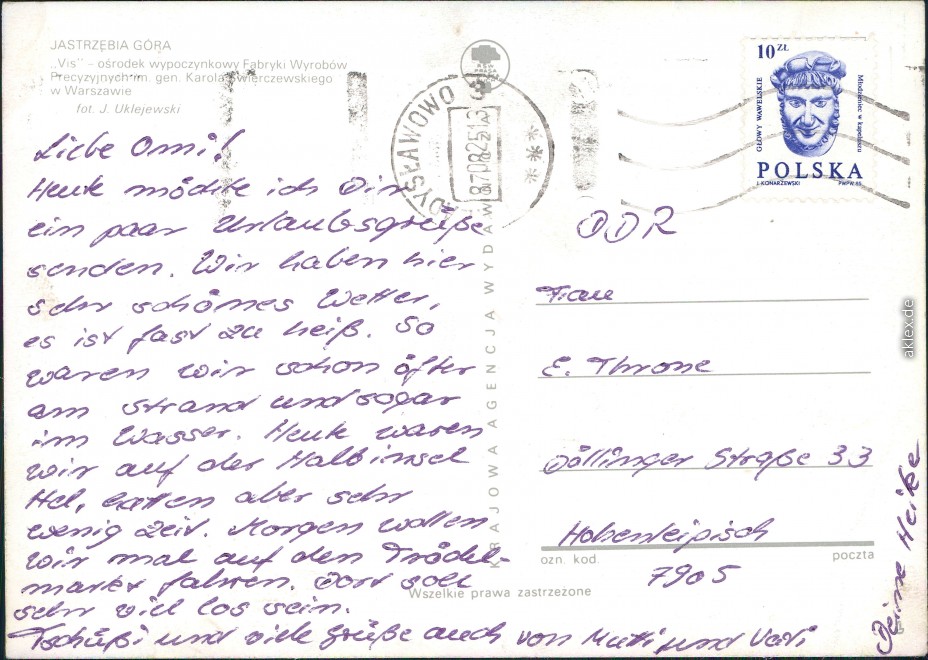 JASTRZĘBIA GÓRA
„Vis” – ośrodek wypoczynkowy Fabryki Wyrobów
Precyzyjnych im. gen. Karola Świerczewskiego
w Warszawie
fot. J. Uklejewski
Liebe Omi!
Heute möchte ich Dir
ein paar Urlaubsgrüße
senden. Wir haben hier
sehr schönes Wetter,
es ist fast zu heiß. So
waren wir schon öfter
am Strand und sogar
im Wasser. Heute waren
wir auf der Halbinsel
Hel, hatten aber sehr
wenig Zeit. Morgen wollen
wir mal auf den Trödel-
markt fahren. Dort soll
sehr viel los sein.
Tschüßi und viele Grüße auch von Mutti und Vati
Deine Heike
KRAJOWA AGENCJA WYDAW
WŁADYSŁAWOWO
87.08.25.13
10 ZŁ
GŁOWY WAWELSKIE
Młodzieniec w kapeluszu
POLSKA
J. KONARZEWSKI
PWPW 85
DDR
Frau
E. Throne
Döllinger Straße 33
Hohenleipisch
7905
ozn. kod.
poczta
Wszelkie prawa zastrzeżone
aklex.de